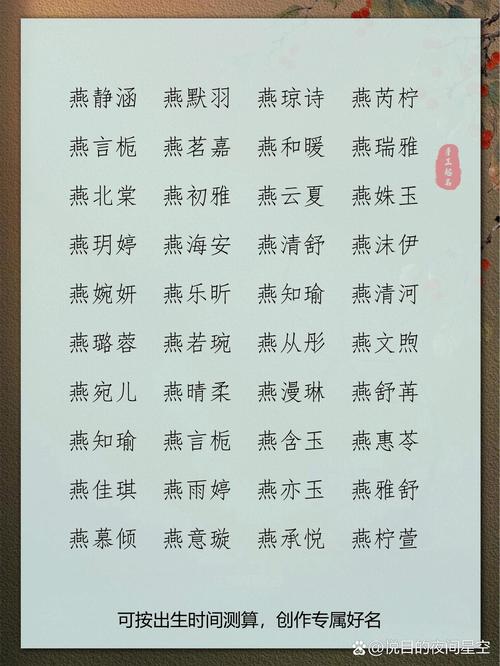 燕静涵 燕默羽 燕琼诗 燕芮柠
燕言栀 燕茗嘉 燕和暖 燕瑞雅
燕北棠 燕初雅 燕云夏 燕姝玉
燕玥婷 燕海安 燕清舒 燕沫伊
燕婉妍 燕乐昕 燕知瑜 燕清河
燕璐蓉 燕若琬 燕从彤 燕文煦
燕宛儿 燕晴柔 燕漫琳 燕舒苒
燕知瑜 燕言栀 燕含玉 燕惠苓
燕佳琪 燕雨婷 燕亦玉 燕雅舒
燕慕倾 燕意璇 燕承悦 燕柠萱
可按出生时间测算，创作专属好名
@悦目的夜间星空